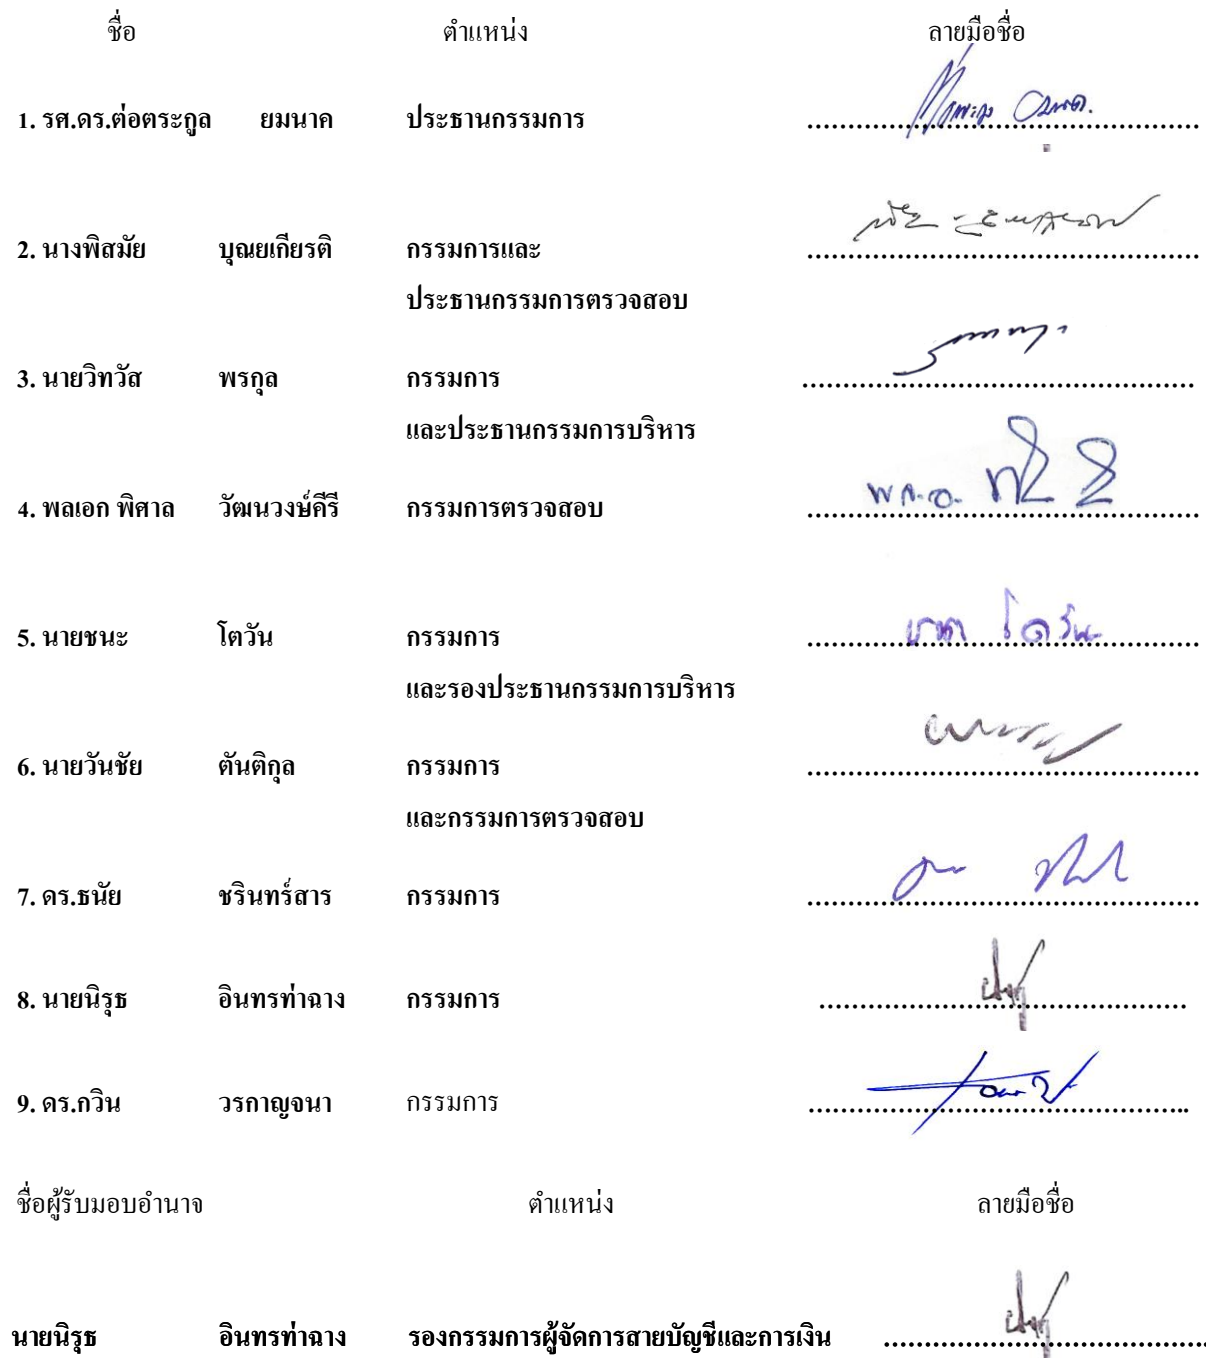 ชื่อ ตำแหน่ง ลายมือชื่อ
1. รศ.ดร.ต่อตระกูล ยมนาค ประธานกรรมการ
2. นางพิสมัย บุณยเกียรติ กรรมการและ
ประธานกรรมการตรวจสอบ
3. นายวิทวัส พรกุล กรรมการ
และประธานกรรมการบริหาร
4. พลเอก พิศาล วัฒนวงษ์คีรี กรรมการตรวจสอบ พล.อ.
5. นายชนะ โตวัน กรรมการ ชนะ โตวัน
และรองประธานกรรมการบริหาร
6. นายวันชัย ตันติกุล กรรมการ
และกรรมการตรวจสอบ
7. ดร.ธนัย ชรินทร์สาร กรรมการ
8. นายนิรุธ อินทรท่าฉาง กรรมการ
9. ดร.กวิน วรกาญจนา กรรมการ
ชื่อผู้รับมอบอำนาจ ตำแหน่ง ลายมือชื่อ
นายนิรุธ อินทรท่าฉาง รองกรรมการผู้จัดการสายบัญชีและการเงิน